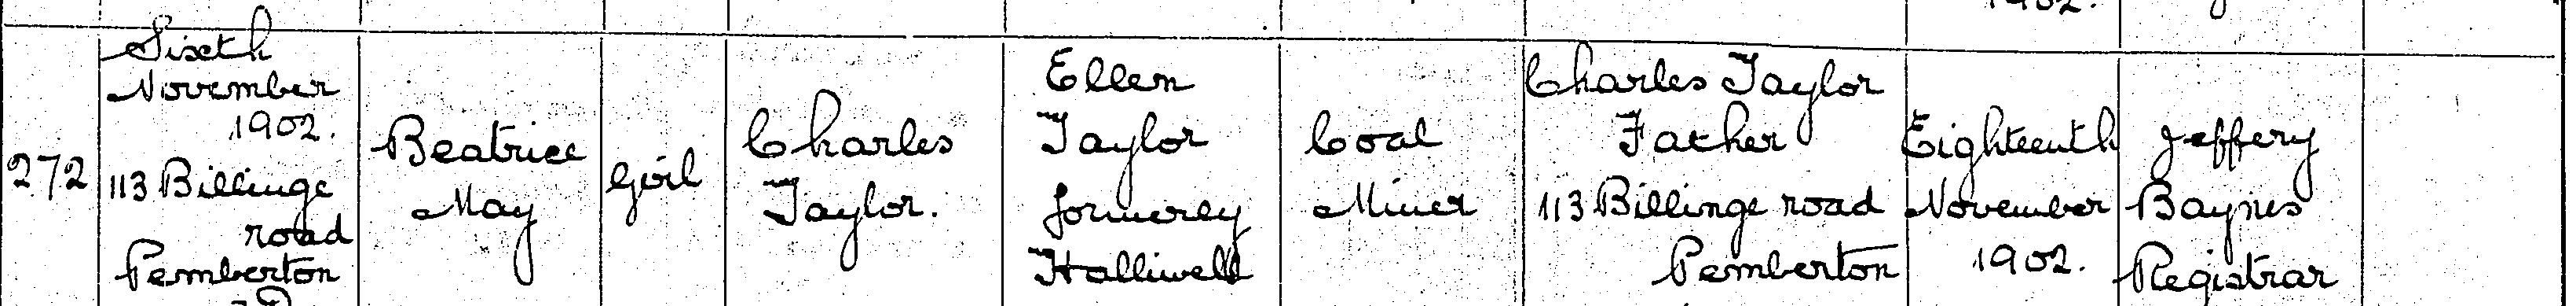 272
Sixth
November
1902.
113 Billinge
road
Pemberton
Beatrice
May
Girl
Charles
Taylor.
Ellen
Taylor
formerly
Halliwell
Coal
Miner
Charles Taylor
Father
113 Billinge road
Pemberton
Eighteenth
November
1902.
Jeffery
Baynes
Registrar
1902.